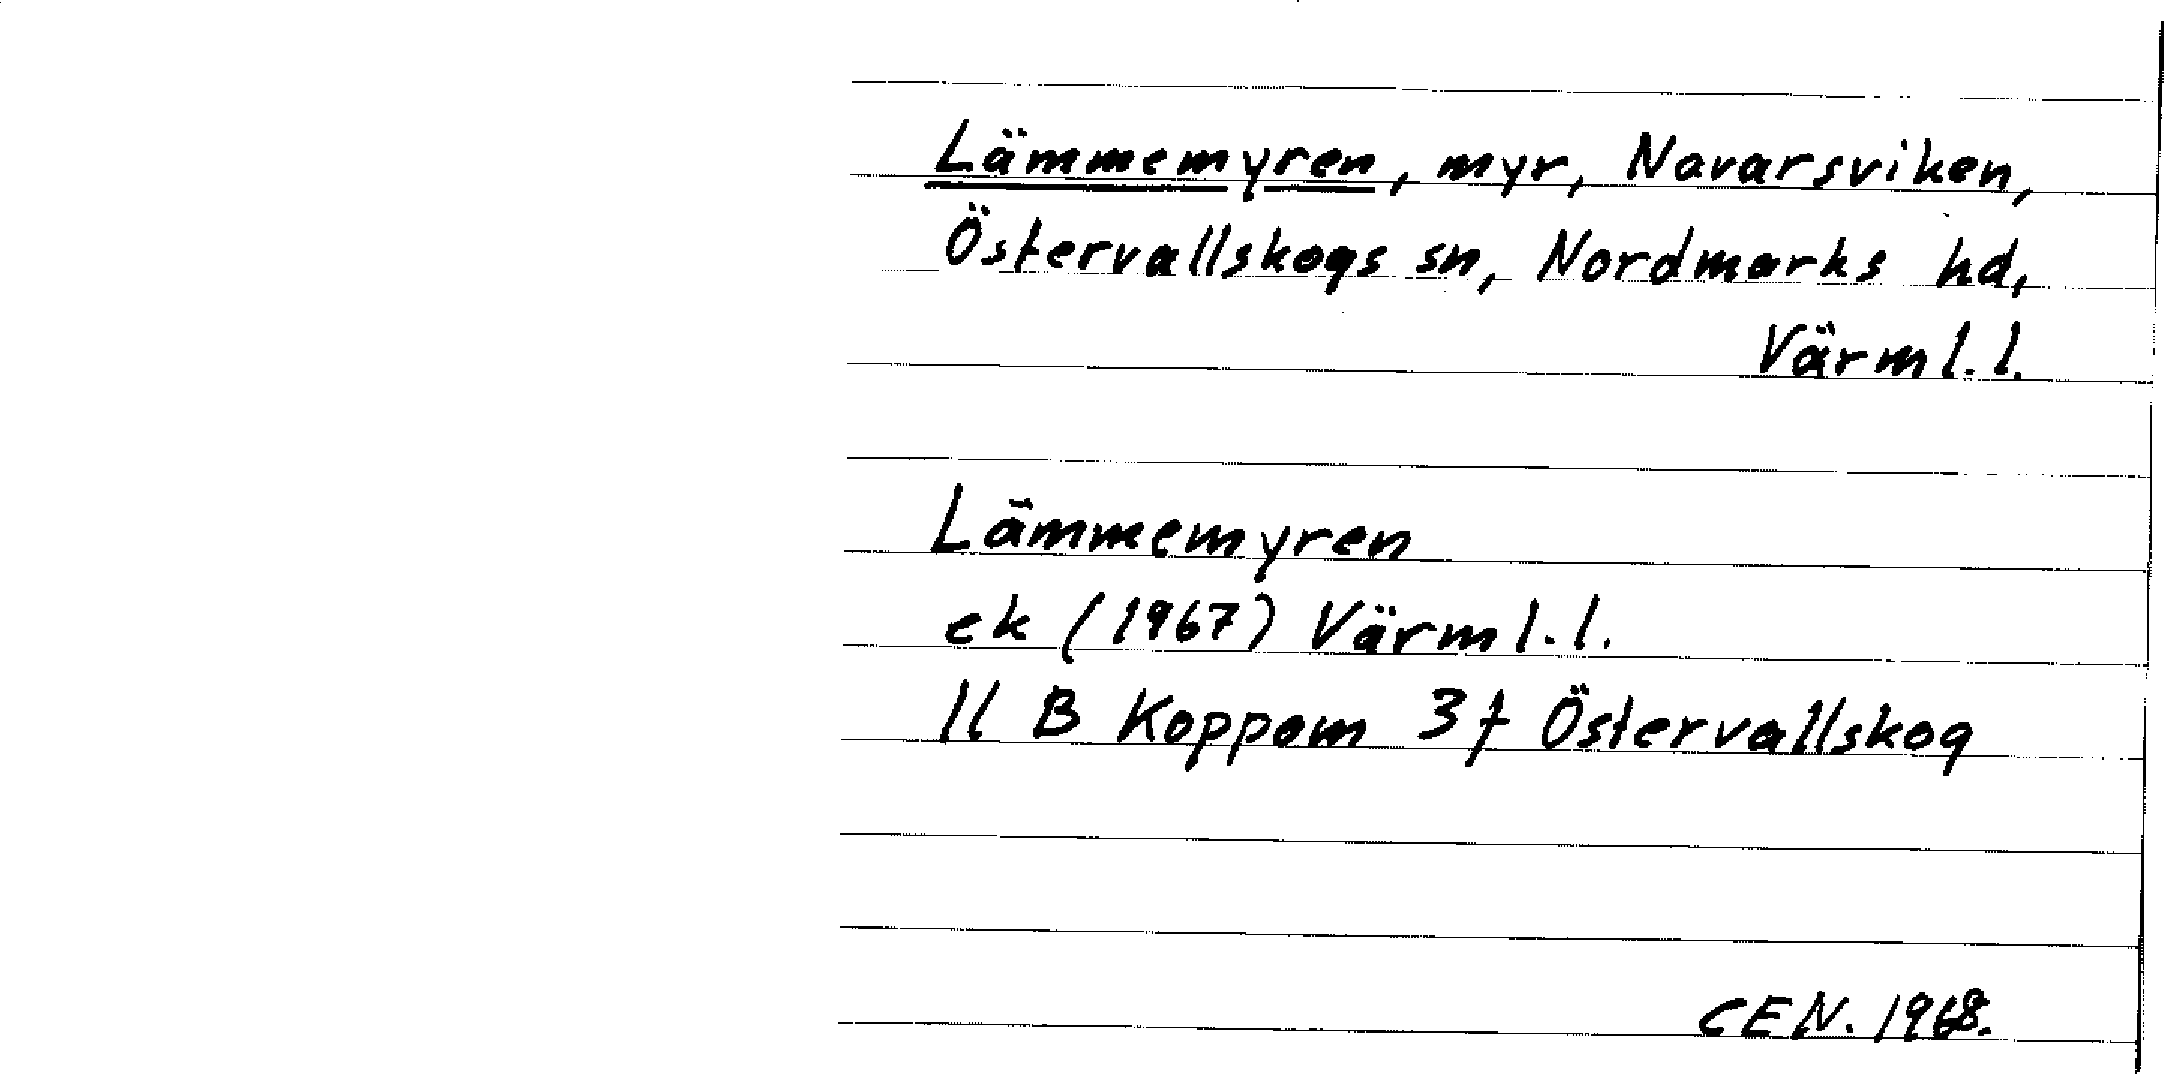 Lämmemyren, myr, Navarsviken,
Östervallskogs sn, Nordmarks hd,
Värml.l.
Lämmemyren
ek (1967) Värml.l.
11 B Koppom 3f Östervallskog
CEN. 1968.